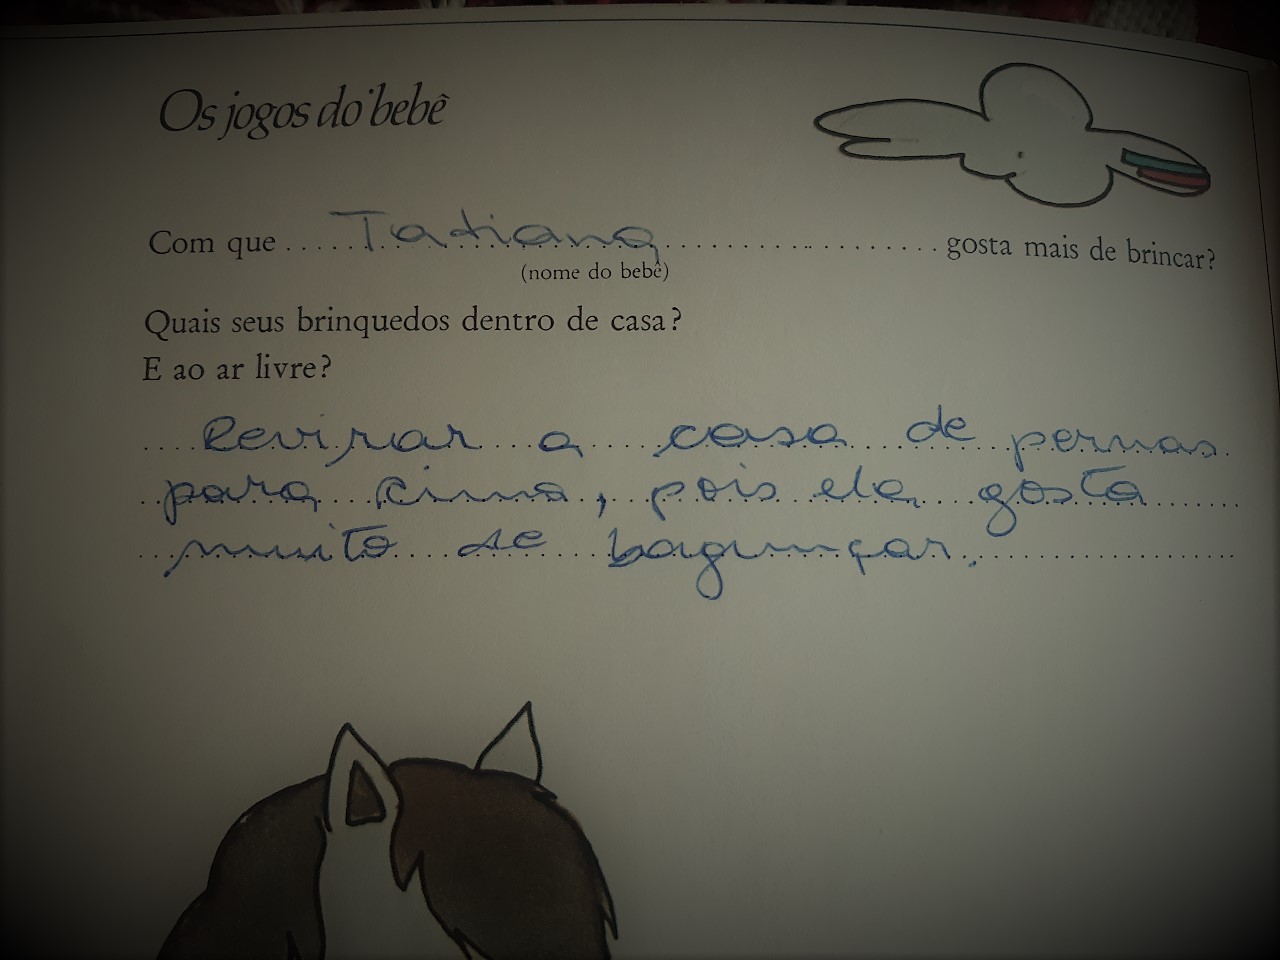 Os jogos do bebê
Com que ..... Tatiana ................. gosta mais de brincar?
(nome do bebê)
Quais seus brinquedos dentro de casa?
E ao ar livre?
Revirar a casa de pernas
para cima, pois ela gosta
muito de bagunçar.